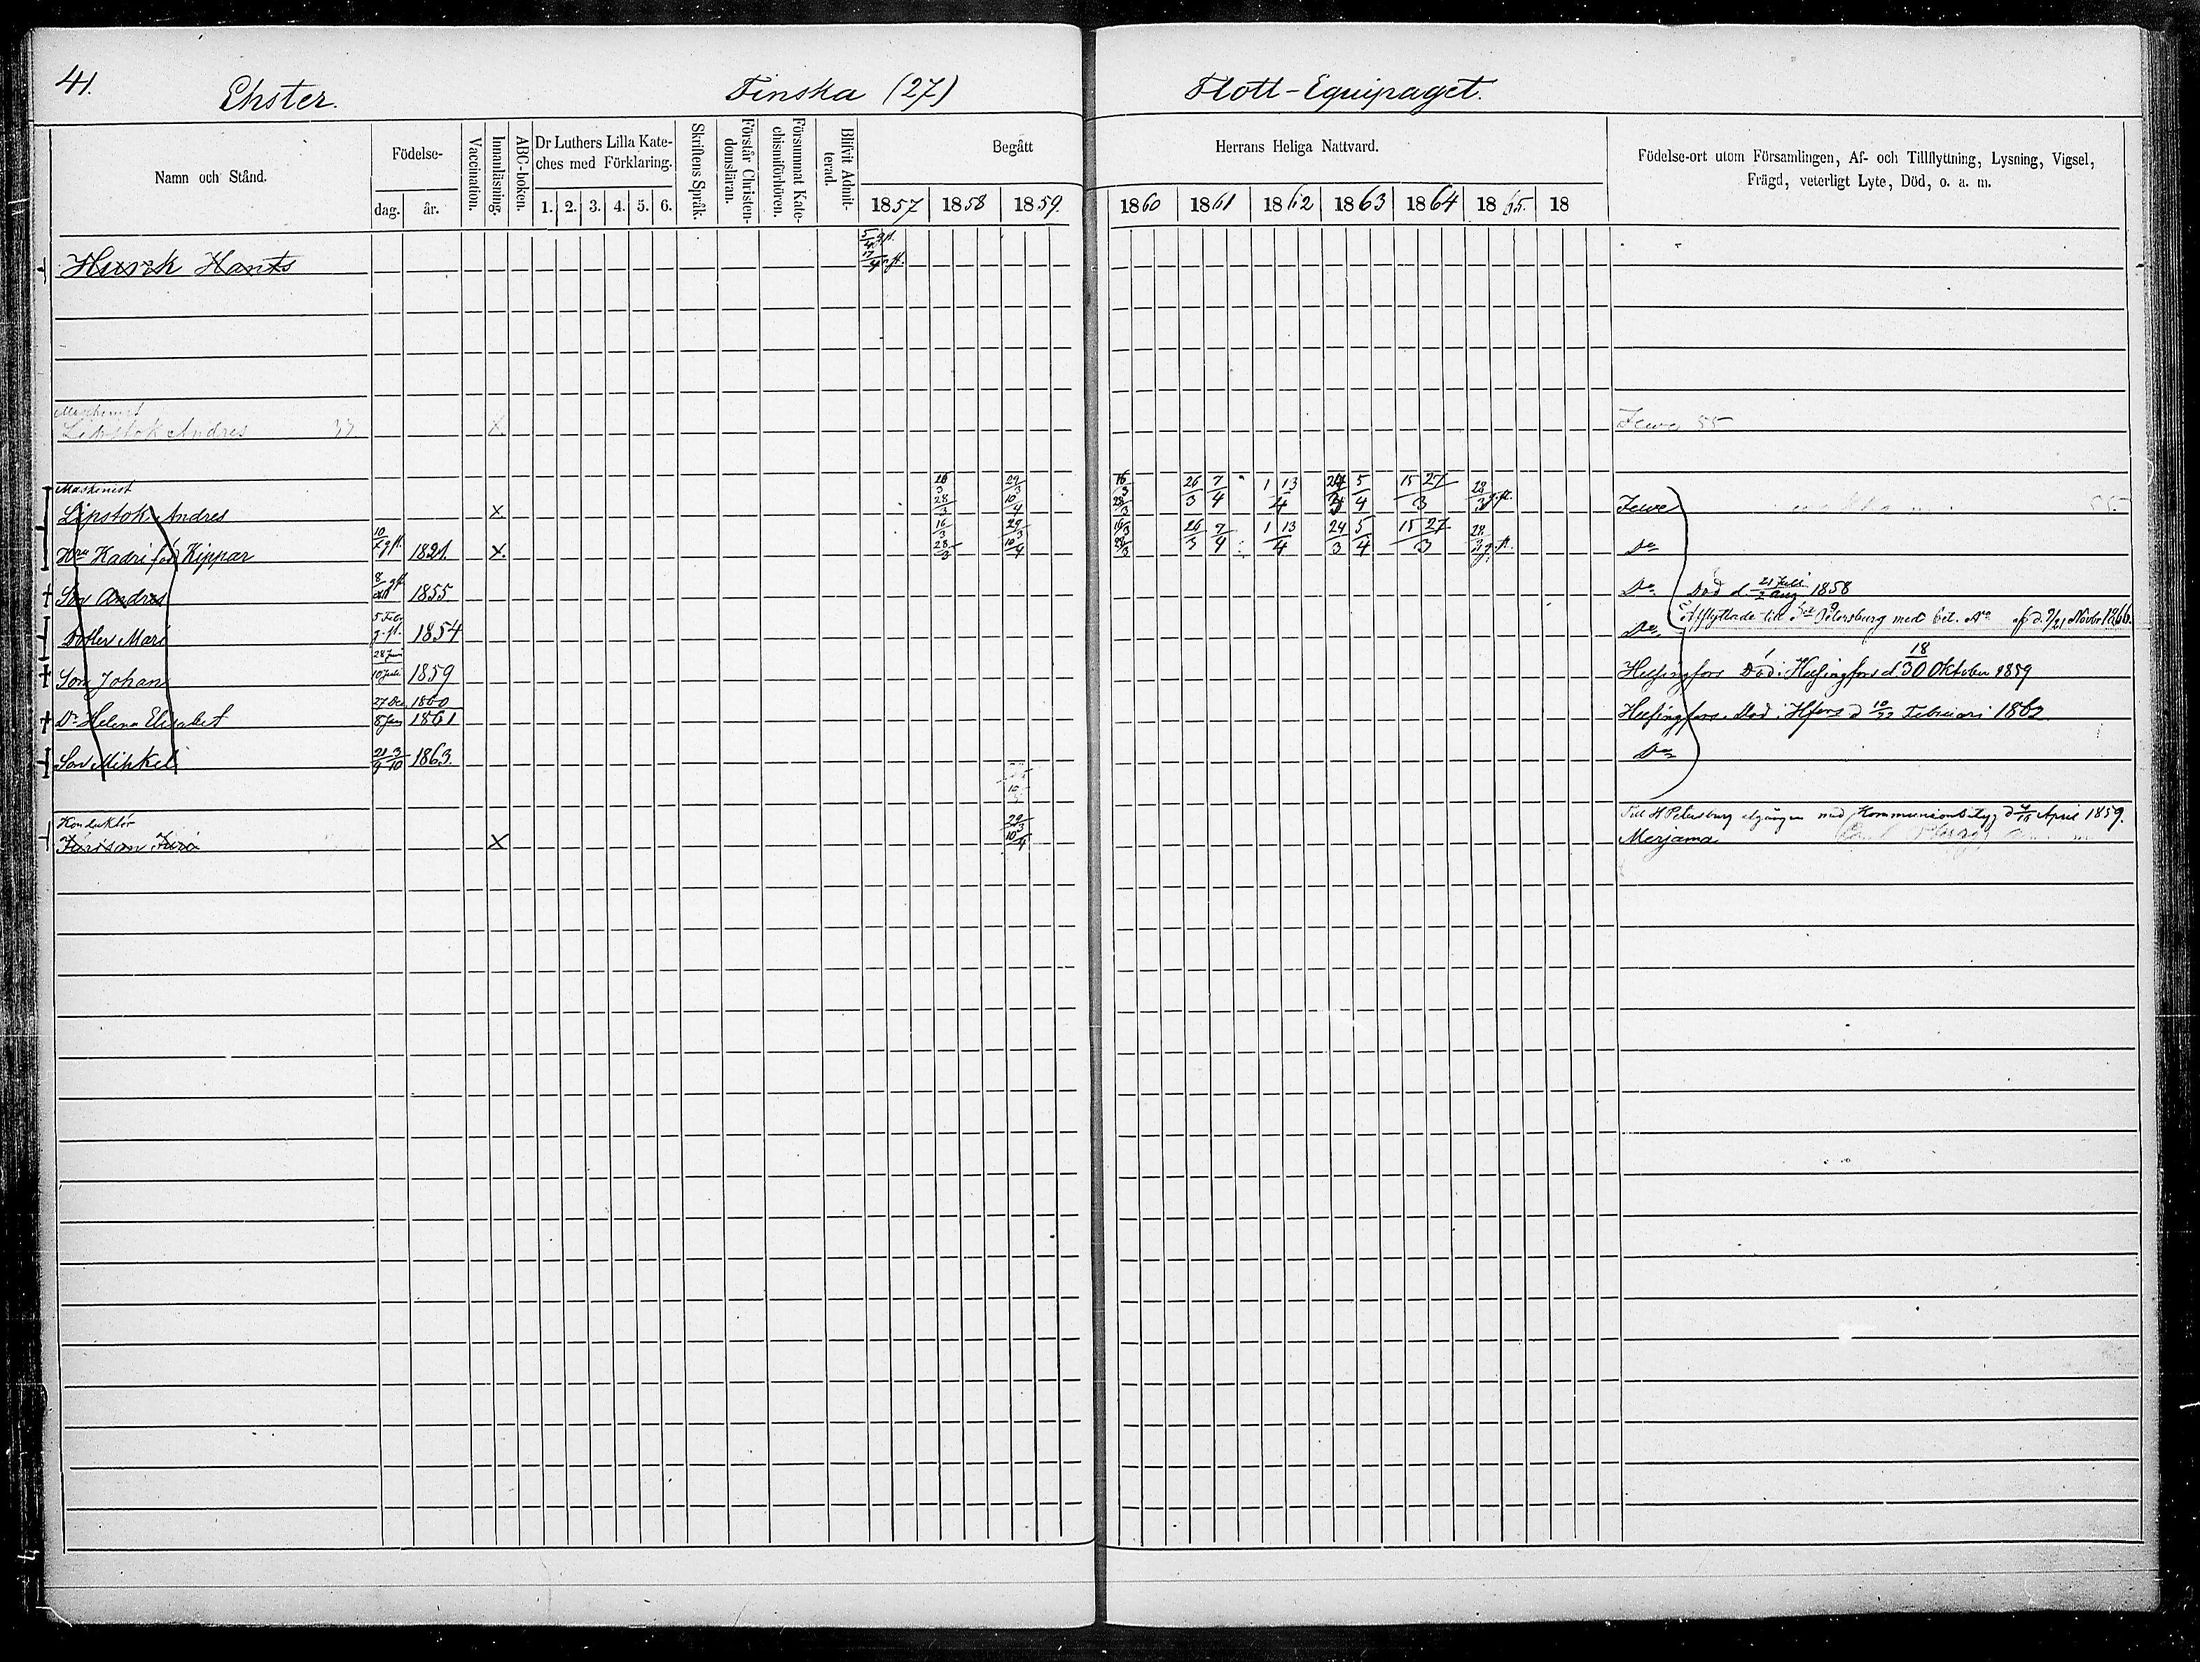 41.
Ehster.
Finska (27)
Flott-Equipaget.
Namn och Stånd.
Födelse-
dag.
år.
Vaccination.
Innanläsning.
ABC-boken.
Dr Luthers Lilla Kate-
ches med Förklaring.
1. 2. 3. 4. 5. 6.
Skriftens Språk.
Förstår Christen-
domsläran.
Försummat Kate-
chismiförhören.
Blifvit Admit-
terad.
Begått
Herrans Heliga Nattvard.
1857 1858 1859. 1860 1861 1862 1863 1864 1865. 18
Födelse-ort utom Församlingen, Af- och Tillflyttning, Lysning, Vigsel,
Frägd, veterligt Lyte, Död, o. a. m.
Hants
Maschinist
Lipstok Andres 33 X Jewe 55
Maskinist
Lipstok Andres X 16/3 28/3 29/3 10/4 16/3 28/3 26/3 7/4 1 13/4 24/3 5/4 15 27/3 28/3 g. st. Jewe 55.
Kadri född Kippar 10/x g st. 1821. X. 16/3 28/3 29/3 10/4 16/3 28/3 26/3 7/4 1 13/4 24/3 5/4 15 27/3 28/3 g. st. Do
Son Andres 8/XII gst 1855. Do Död d. 21 Juli/2 Aug 1858
Dotter Mari 5 Feb. g. st. 1854 Do Afflyttade till S:t Petersburg med bet. No af d. 9/21 Novbr 1866.
Son Johan 28 Juni 10 Juli 1859 Helsingfors Död i Helsingfors d 18/30 Oktober 1859
Dr Helena Elisabet 27 Dec. 1860 8 Jan 1861 Helsingfors. Död i Hfors d 10/22 Februari 1862
Son Mihkel 21/9 3/10 1863. Do
Konduktör
X 29/3 10/4 Till St Petersburg afgången med Kommunionbetyg d 4/16 April 1859.
Merjama